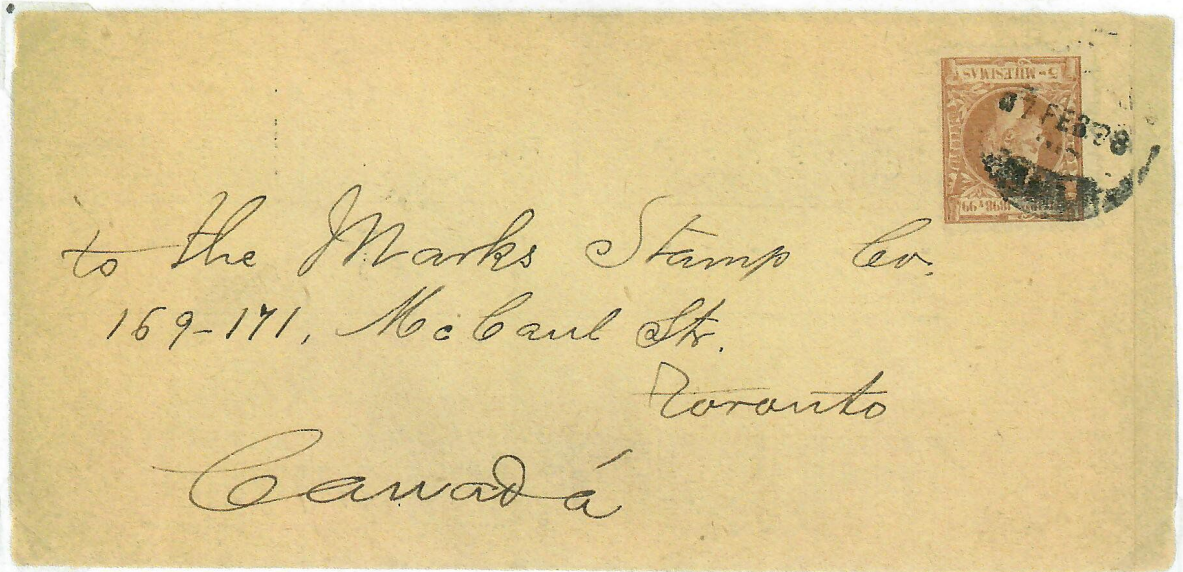 5 MS MILESIMAS
1898 Y 99
07 FEB 98
to the Marks Stamp Co.
169-171, Mc Caul Str.
Toronto
Canadá